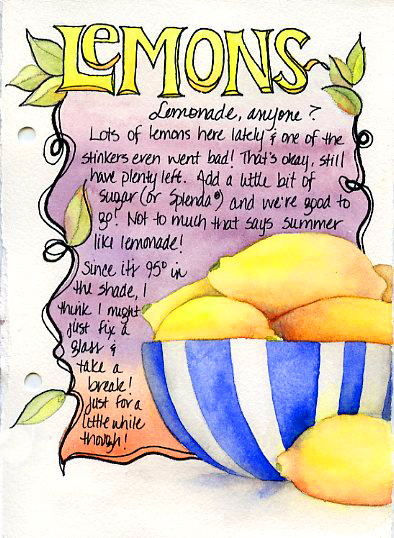 LEMONS
Lemonade, anyone?
Lots of lemons here lately & one of the
stinkers even went bad! That's okay, still
have plenty left. Add a little bit of
sugar (or Splenda®) and we're good to
go! Not to much that says summer
like lemonade!
Since it's 95° in
the shade, I
think I might
just fix a
glass &
take a
break!
Just for a
little while
though!